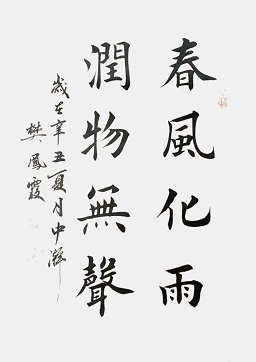 春風化雨
潤物無聲
歲在辛丑夏月中澣
樊鳳霞